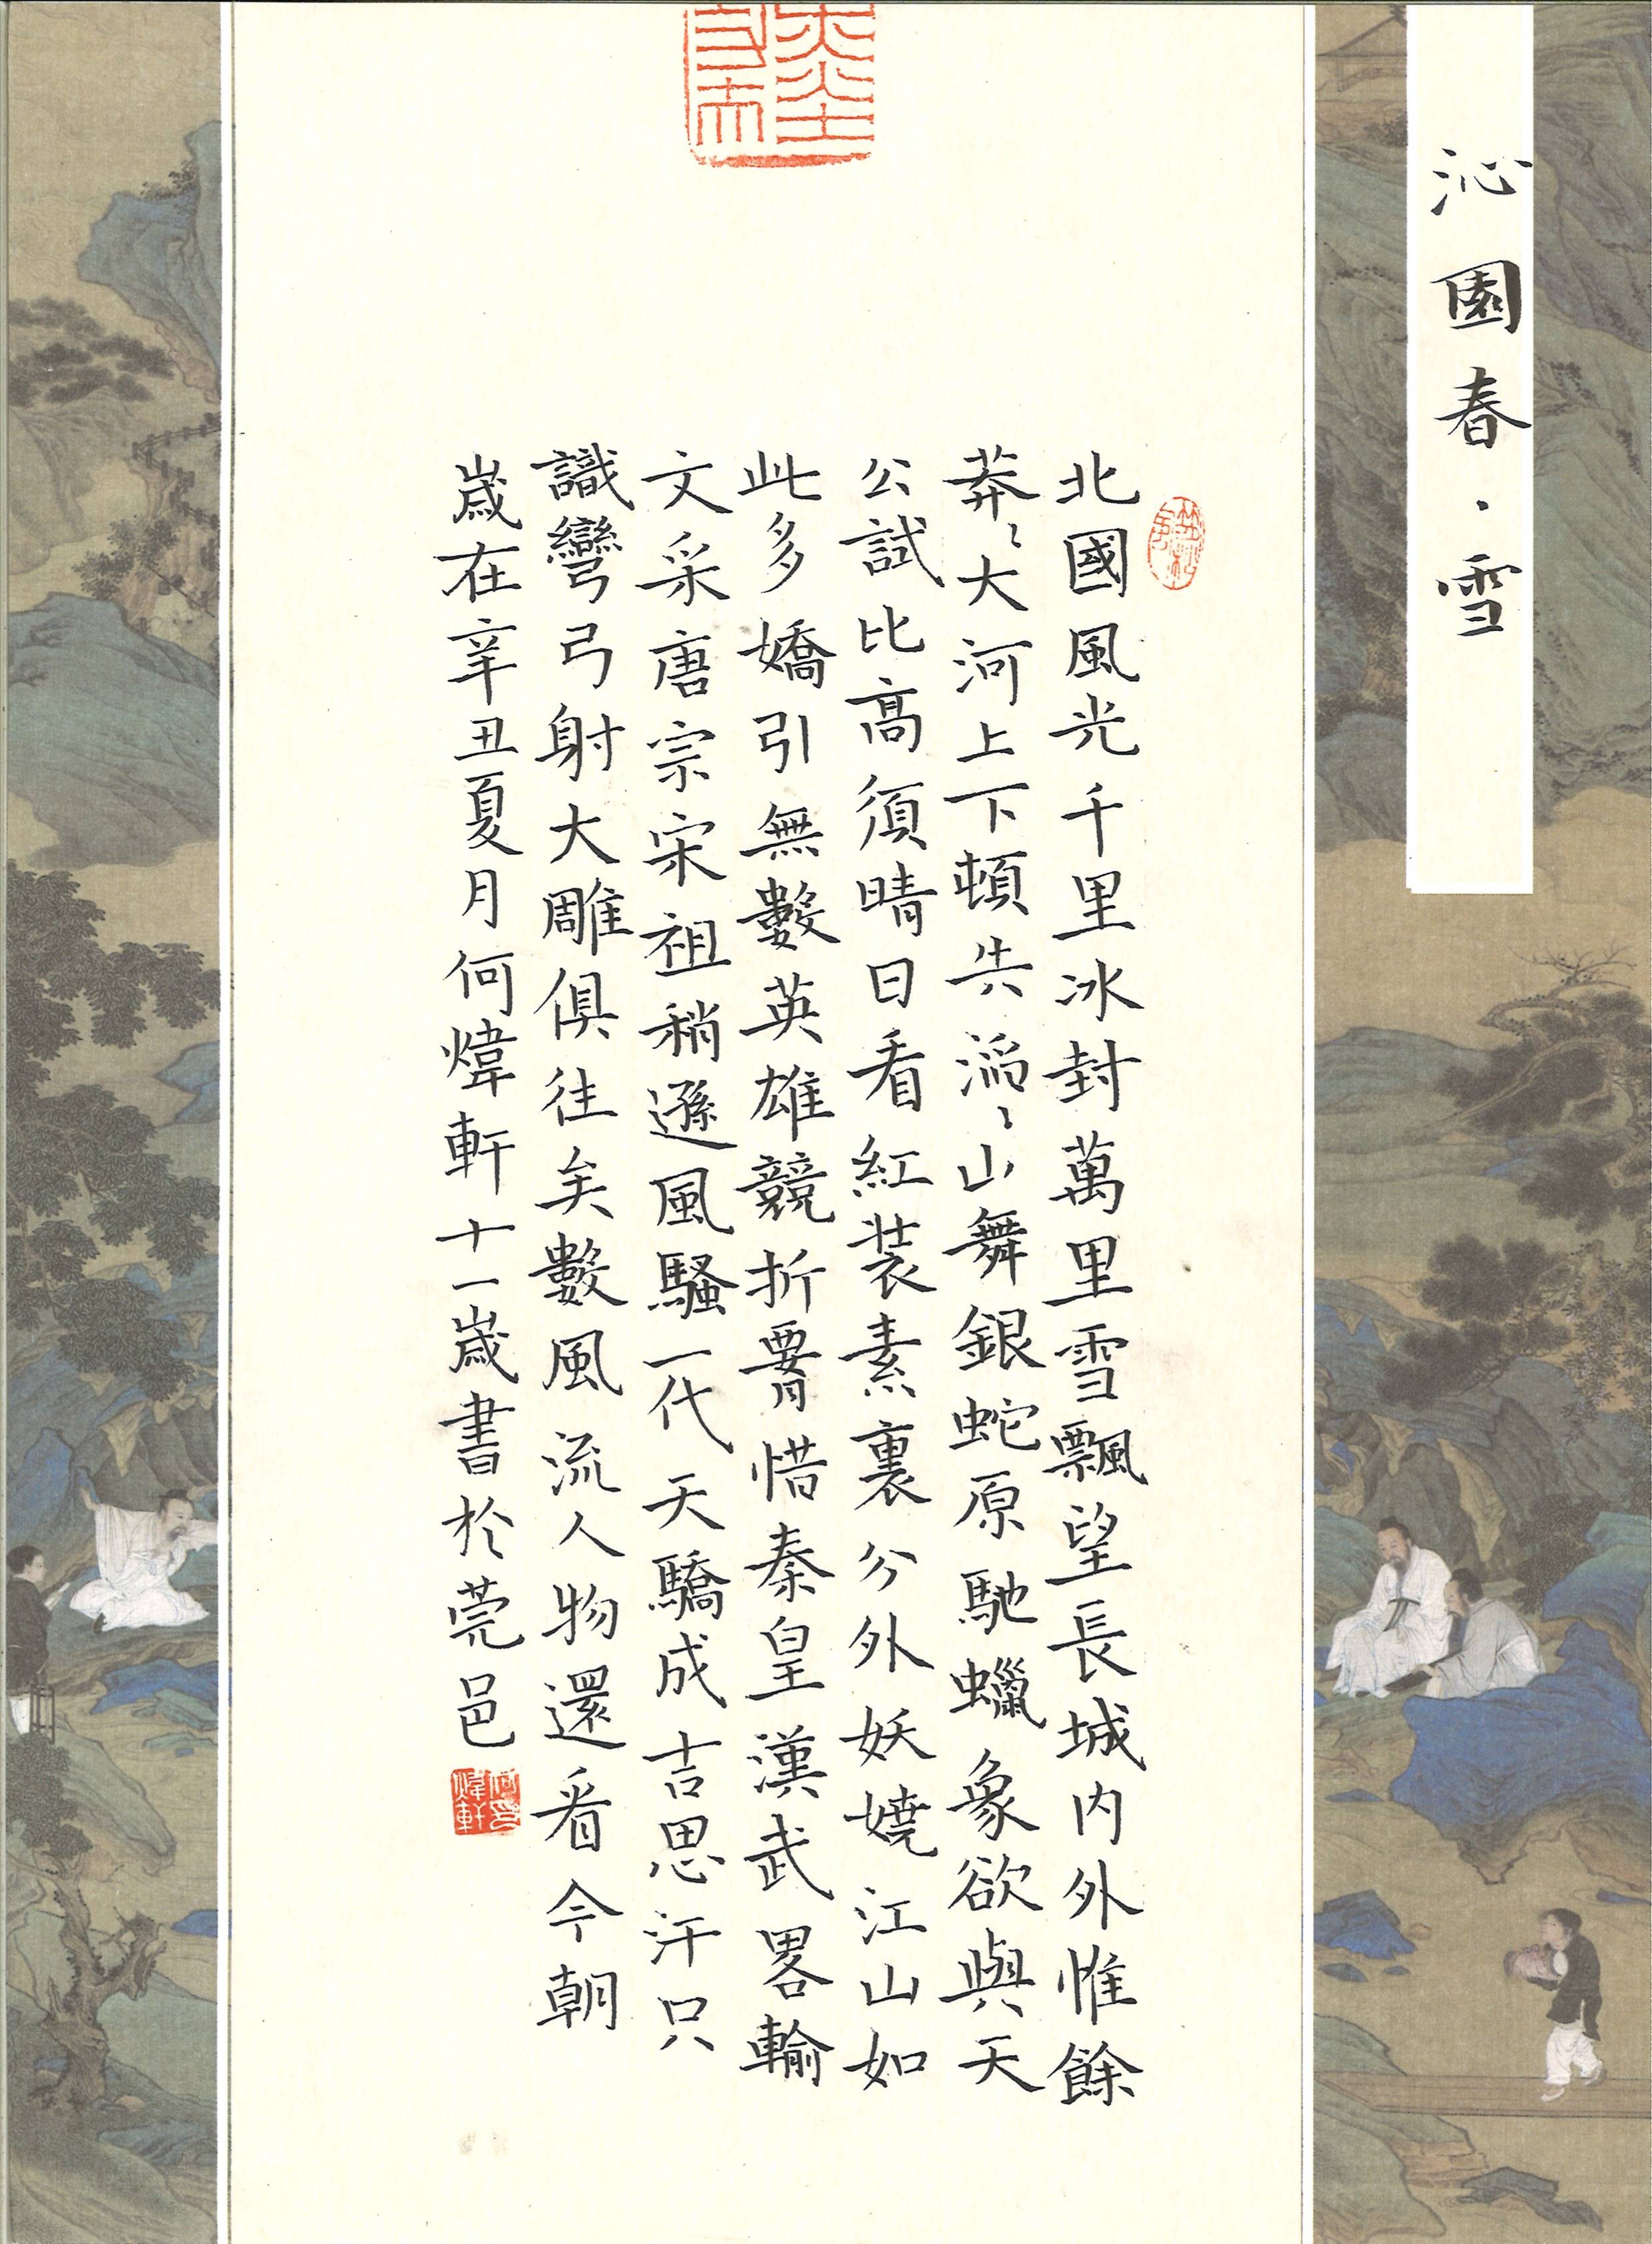 沁園春·雪
北國風光千里冰封萬里雪飄望長城内外惟餘
莽々大河上下頓失滔々山舞銀蛇原馳蠟象欲與天
公試比高須晴日看紅裝素裹分外妖嬈江山如
此多嬌引無數英雄競折腰惜秦皇漢武畧輸
文采唐宗宋祖稍遜風騷一代天驕成吉思汗只
識彎弓射大雕俱往矣數風流人物還看今朝
歲在辛丑夏月何煒軒十一歲書於莞邑
何印煒軒